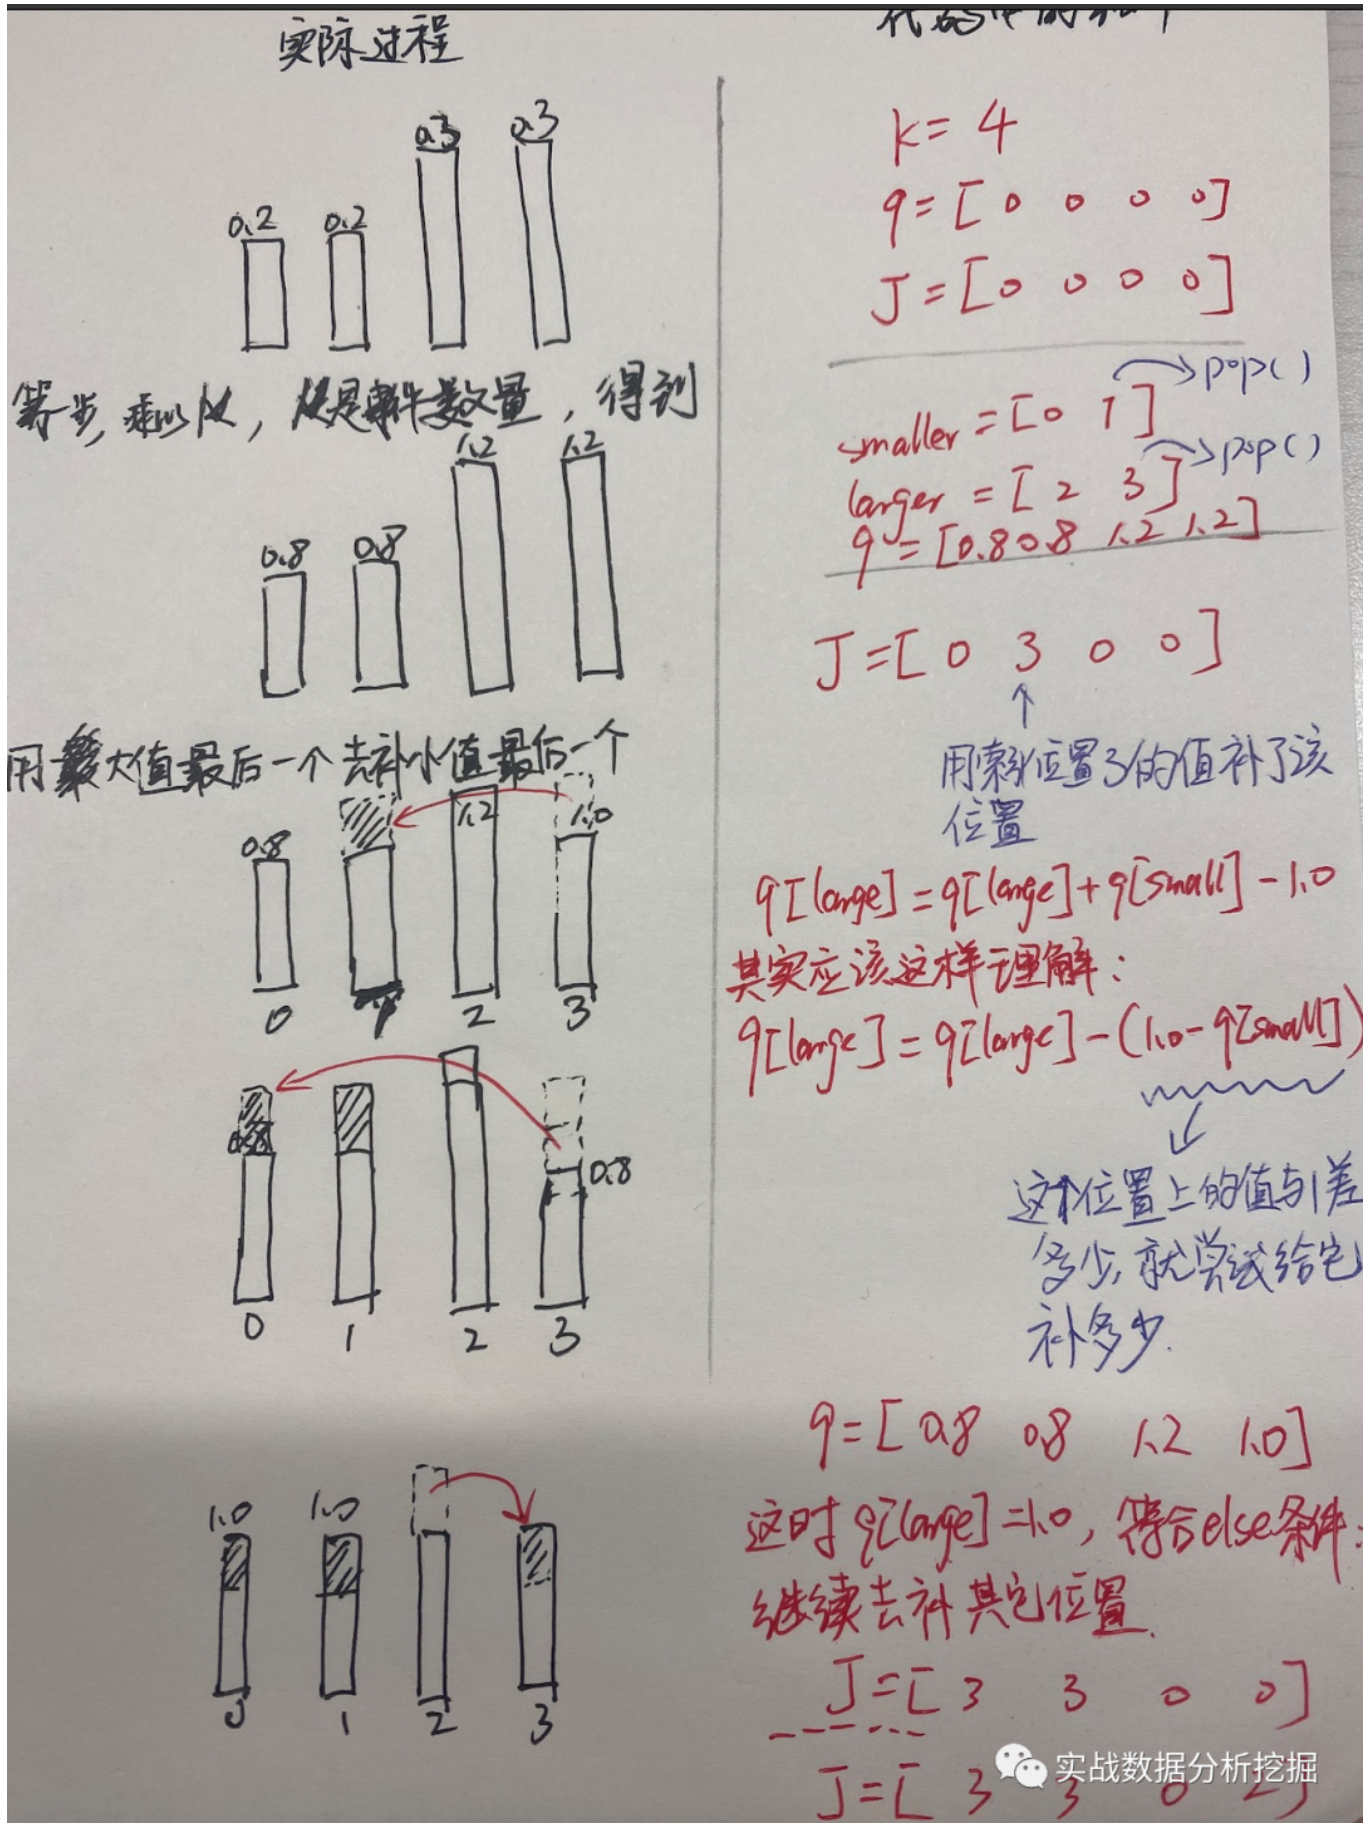 实际过程
0.2
0.2
0.3
0.3
第一步,乘以K,K是事件数量,得到
0.8
0.8
1.2
1.2
用最大值最后一个去补小值最后一个
0.8
1.2
1.0
0 1 2 3
0.8
0 1 2 3
1.0
1.0
0 1 2 3
K=4
q=[0 0 0 0]
J=[0 0 0 0]
smaller=[0 1] pop()
larger=[2 3] pop()
q=[0.8 0.8 1.2 1.2]
J=[0 3 0 0]
用索引位置3的值补了该
位置
q[large]=q[large]+q[small]-1.0
其实应该这样理解:
q[large]=q[large]-(1.0-q[small])
这个位置上的值与1差
多少,就尝试给它
补多少.
q=[0.8 0.8 1.2 1.0]
这时q[large]=1.0,符合else条件.
继续去补其它位置.
J=[3 3 0 0]
J=[3 3 0 2]
实战数据分析挖掘